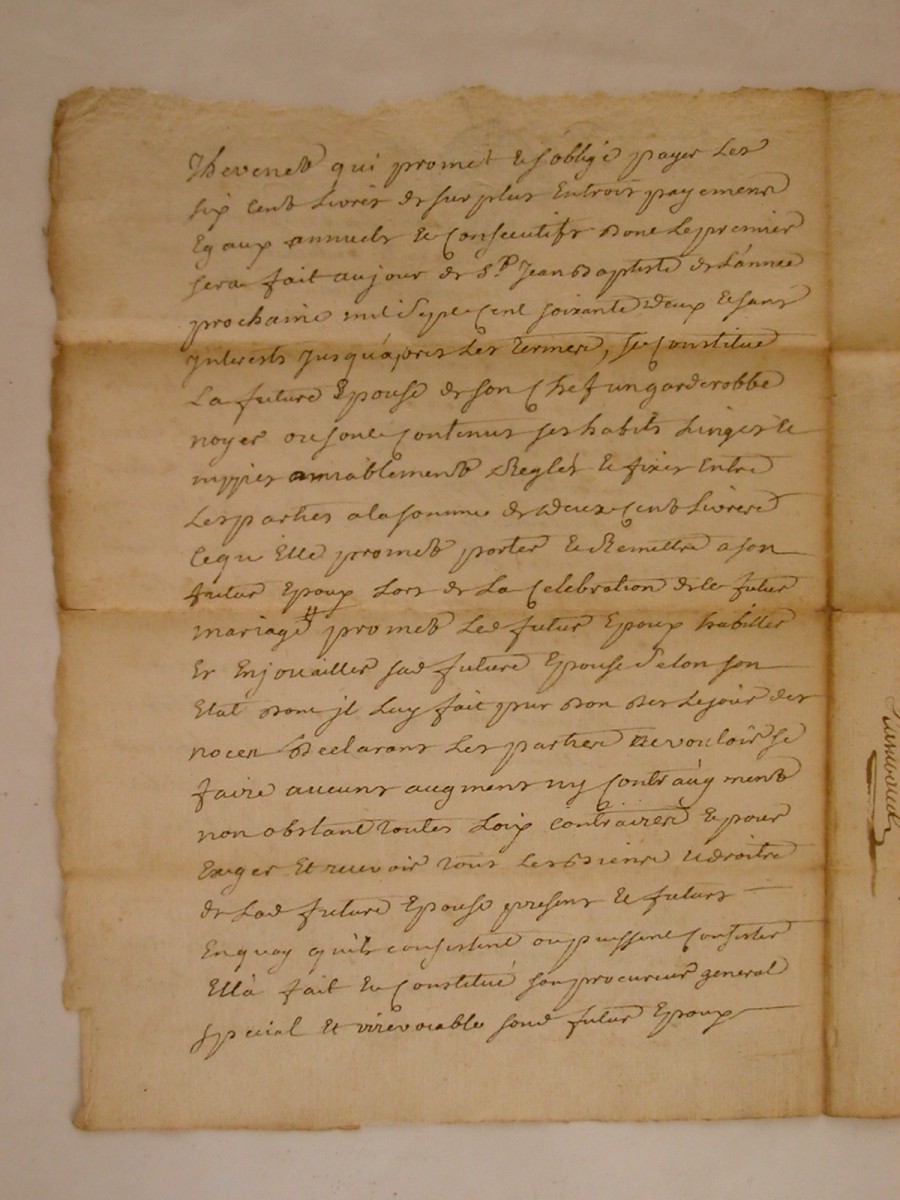 Thevenet qui promet et s'oblige payer les
six cent livres de surplus en trois payement
egaux annuels et consecutifs dont le premier
sera fait au jour de St Jean Baptiste de l'année
prochaine mil sept cent soixante deux et sans
interests jusqu'apres les termes, se constitue
la future Epouse de son chef un garderobbe
noyer ou sont contenus ses habits linges et
nippes amiablement reglés et fixés entre
les parties a la somme de deux cent livres
ce qu'elle promet porter et remettre a son
futur Epoux lors de la celebration dele futur
mariage # promet led futur Epoux habiller
et enjouailler sad future Epouse selon son
Etat dont jl luy fait pur don des le jour des
noces declarant les parties ne vouloir se
faire aucuns augment ny contraugment
nonobstant toutes loix contraires et pour
exiger et recevoir tous les biens et droits
de lad future Epouse present et futurs
en quoy qu'ils consistent ou puissent consister
Ella fait et constitué son procureur general
special et irrevocable sond futur Epoux